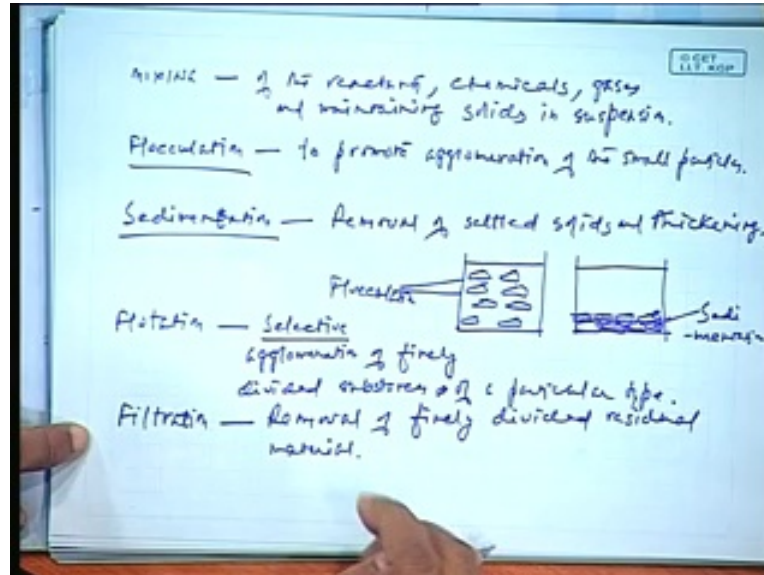 © CET
I.I.T. KGP
MIXING — of the reactants, chemicals, gases
and maintaining solids in suspension.
Flocculation — to promote agglomeration of the small particles.
Sedimentation — Removal of settled solids and thickening.
Flocculation
Sedi
-mentation
Flotation — Selective
agglomeration of finely
divided substances of a particular type.
Filtration — Removal of finely divided residual
material.